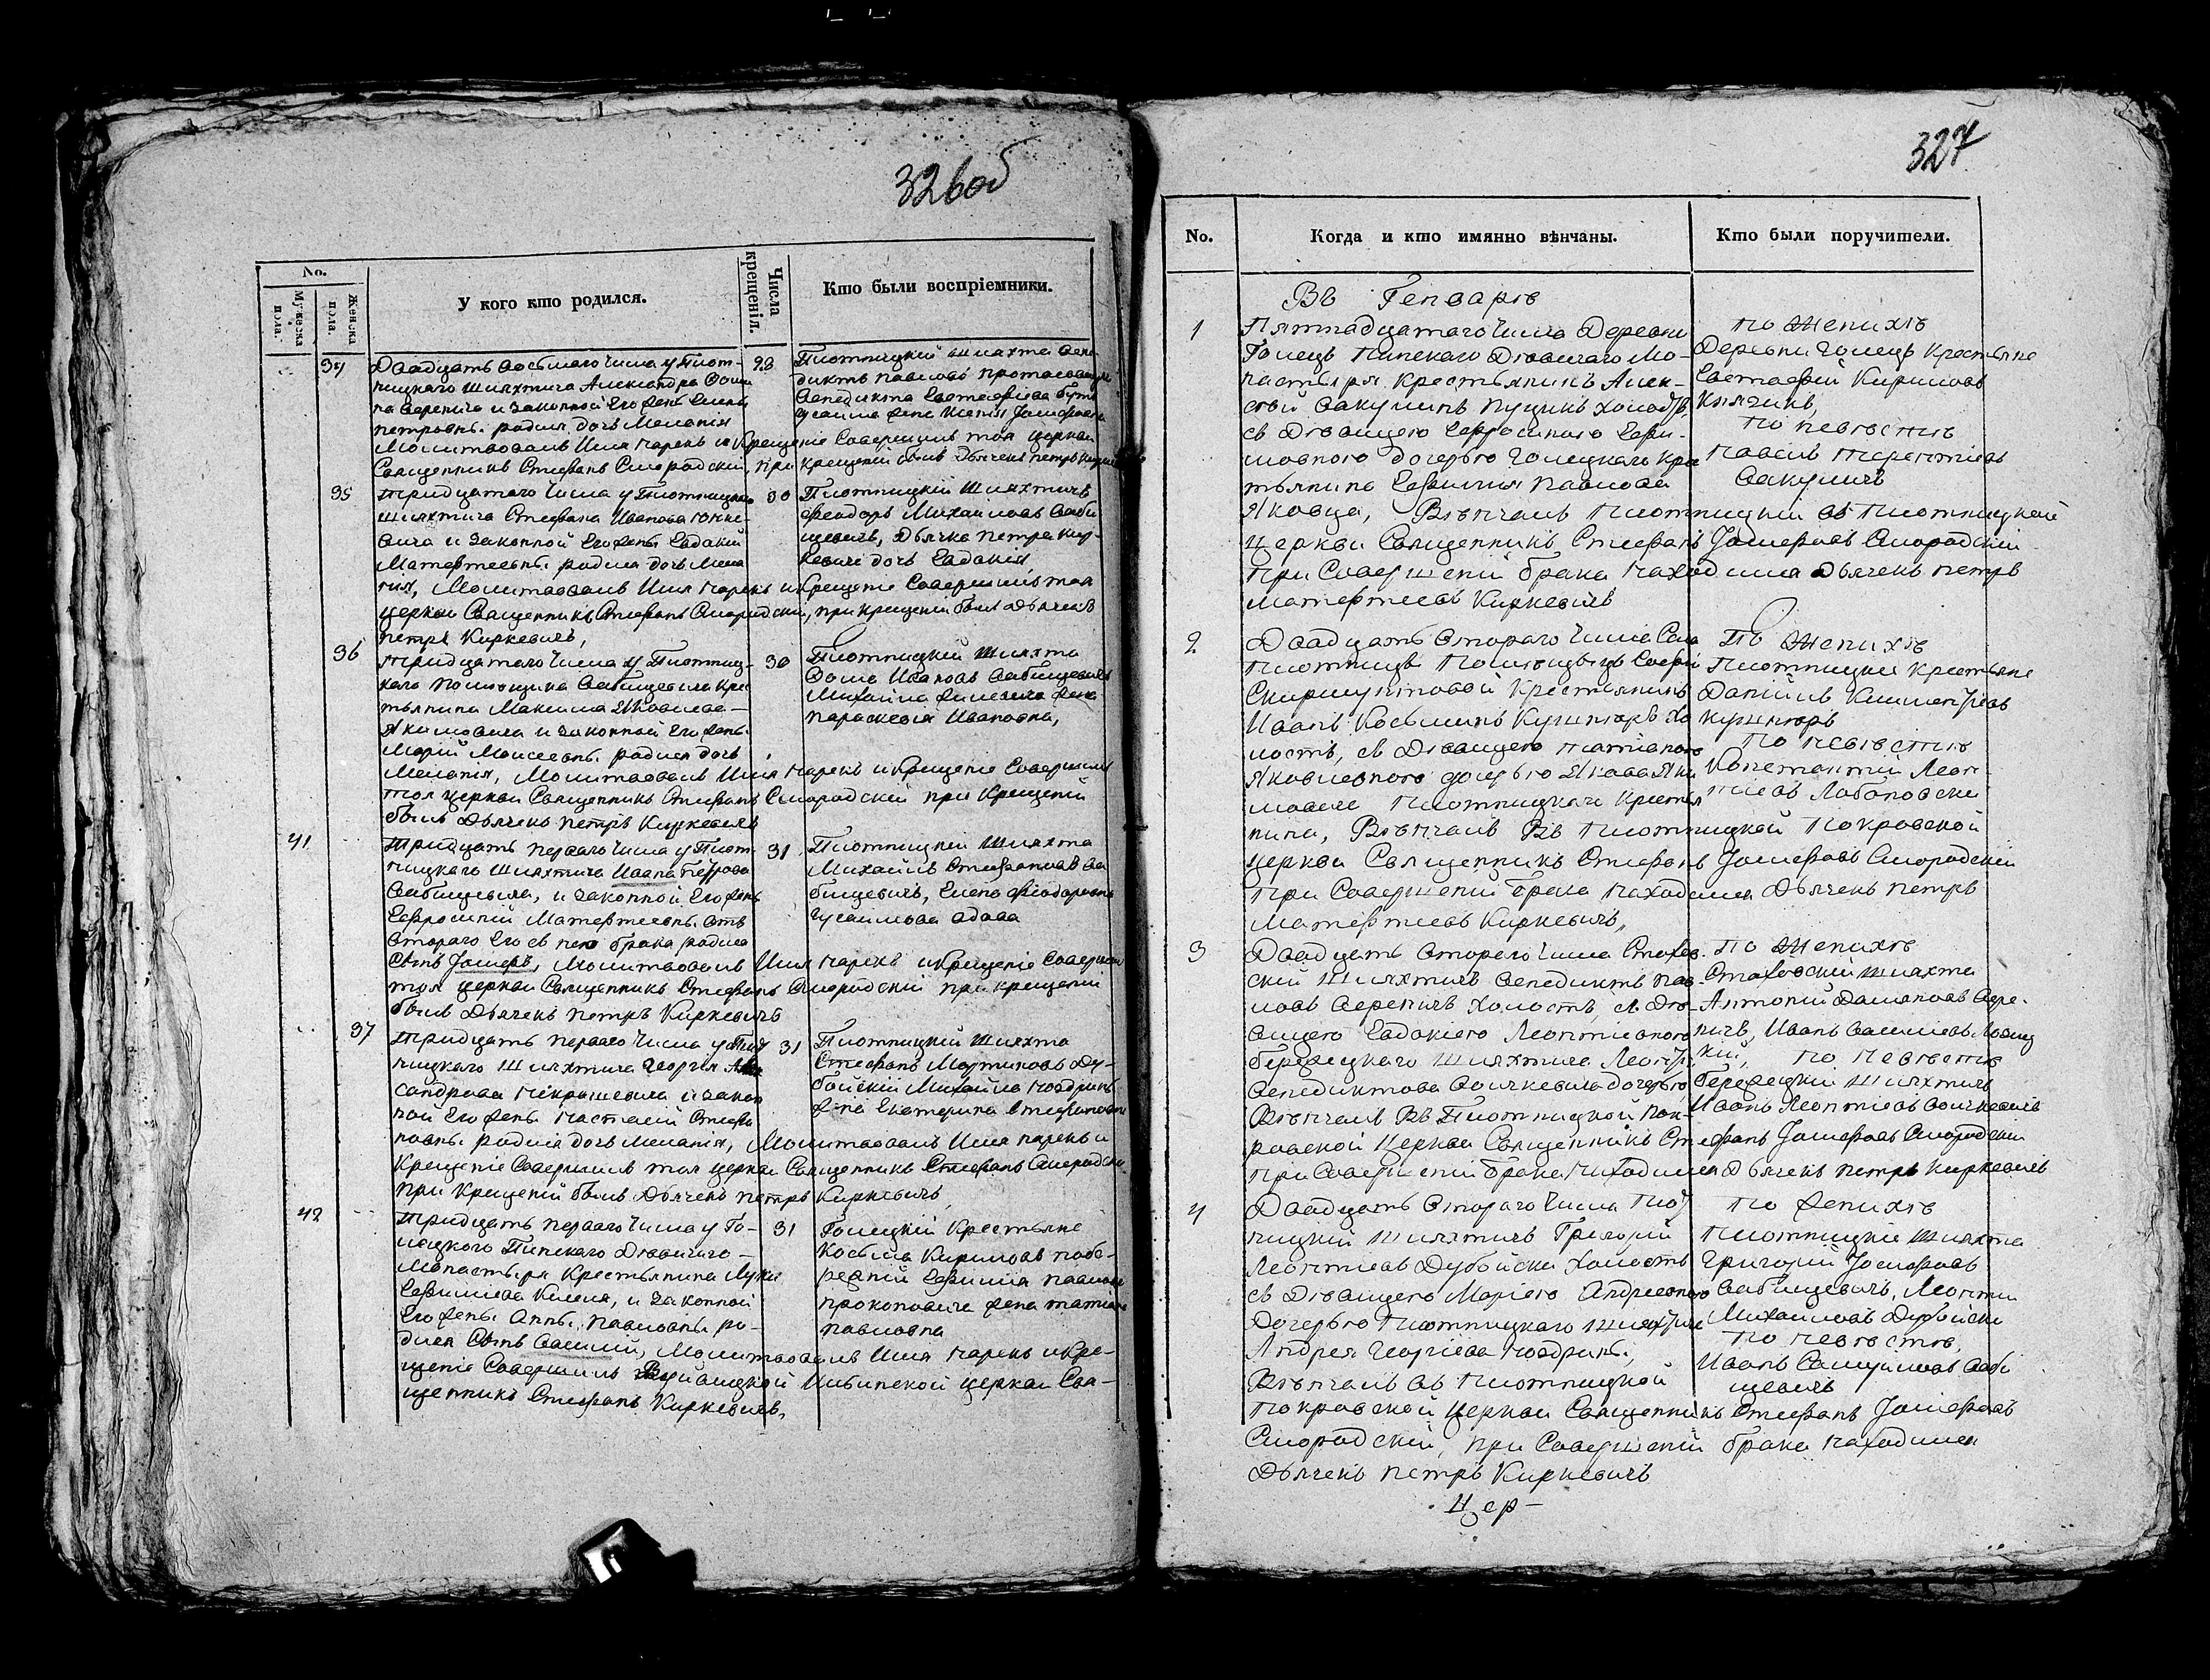 326об
No.
Мужеска пола.
Женска пола.
У кого кто родился.
Числа крещенія.
Кто были воспріемники.
34
Двадцать восьмаго Числа у Плот-
ницкаго шляхтича Александра
и законной Его жены Елены
Петровны родилась дочь Меланія
Молитвовалъ Имя нарекъ и Крещеніе Совершилъ тоя церкви
Священникъ Стефанъ Смородский, при крещеніи былъ Дьячекъ Петръ
28
Плотницкій шляхта Вене-
диктъ Павловъ
Венедикта Евстафіева
жена Ксенія Іосифовна
35
Тридцатаго Числа у Плотницкаго
шляхтича Стефана Иванова
и законной Его жены Евдокіи
Матфеевны родилась дочь Мела-
нія, Молитвовалъ Имя нарекъ и Крещеніе Совершилъ тоя
церкви Священникъ Стефанъ Смородский, при крещеніи былъ Дьячекъ
Петръ Киркевичъ,
30
Плотницкій Шляхтичъ
Феодоръ МихаиловъВаби-
щевичъ, Дьячка Петра Кир-
кевича дочь Евдокія,
36
Тридцатаго Числа У Плотниц-
каго помѣщика Вабищевича Кре-
стьянина Максима Яковлева
Якимовича и законной Его жены
Маріи Моисеевны родилась дочь
Меланія, Молитвовалъ Имя нарекъ и Крещеніе Совершилъ
тоя церкви Священникъ Стефанъ Смородский при Крещеніи
былъ Дьячекъ Петръ Киркевичъ
30
Плотницкій Шляхта
Фома Ивановъ Вабищевичъ
Михаила жена
Параскевія Ивановна,
41
Тридцать перваго Числа у Плот-
ницкаго шляхтича Ивана Петрова
Вабищевича, и законной Его жены
Евфросиніи Матфеевны отъ
втораго Его съ нею брака родился
Сынъ Іосифъ, Молитвовалъ Имя нарекъ и Крещеніе Совершилъ
тоя церкви Священникъ Стефанъ Смородскій при крещеніи
былъ Дьячекъ Петръ Киркевичъ
31
Плотницкій Шляхта
Михаилъ Стефановъ Ва-
бищевичъ, Елена Феодоровна
вдова
37
Тридцать перваго Числа у Плот-
ницкаго Шляхтича Георгія Алек-
сандрова Некрашевича и закон-
ной Его жены Настасіи Стефа-
новны родилась дочь Меланія, Молитвовалъ Имя нарекъ и
Крещеніе Совершилъ тоя церкви Священникъ Стефанъ Смородский
При Крещеніи былъ Дьячекъ Петръ Киркевичъ
31
Плотницкій Шляхта
Стефанъ Мартиновъ Ду-
бойскій Михаила Ноздрина
жена Екатерина Стефановна
42
Тридцать перваго Числа у Го-
лецкаго Пинскаго Дѣвичьяго
Монастыря Крестьянина Луки
и законной
Его жены Анны Павловны ро-
дился Сынъ Василій, Молитвовалъ Имя нарекъ и Кре-
щеніе Совершилъ церкви Свя-
щенникъ Стефанъ Киркевичъ.
31
Голецкій Крестьяне
Косьма Кириловъ
Павлова
Прокоповича жена Татіана
Павловна
327
No.
Когда и кто имянно вѣнчаны.
Кто были поручители.
Въ Генварѣ
1
Пятнадцатаго Числа Деревни
Голецъ Пинскаго Дѣвичаго Мо-
настыря Крестьянинъ Алек-
сѣй Вакулинъ Пуцикъ холостъ,
съ Дѣвицею Евфросиніею Евфи-
мовною дочерью Голецкаго Крес-
тьянина Евфимія Павлова
Яковца, Вѣнчалъ Плотницкій въ Плотницкой
церкви Священникъ Стефанъ Іосифовъ Смородскій
При Совершеніи брака находился Дьячекъ Петръ
Матфеевъ Киркевичъ
По Женихѣ
Деревни Голецъ Крестьяне
Евстафій Кириловъ
По невѣстѣ
Павелъ Терентіевъ
Вакуличъ
2
Двадцать втораго Числа Села
Плотницы Помѣщицы Софіи
Скирмунтовой Крестьянинъ
Иванъ Косьминъ Кушнеръ хо-
лостъ, съ Дѣвицею Татіаною
Яковлевною дочерью Якова Яки-
мовича Плотницкаго Крестья-
нина, Вѣнчалъ Въ Плотницкой Покровской
церкви Священникъ Стефанъ Іосифовъ Смородскій
При Совершеніи брака находился Дьячекъ Петръ
Матфеевъ Киркевичъ,
По Женихѣ
Плотницкіе Крестьяне
Даніилъ Климентіевъ
Кушнеръ
По невѣстѣ
Константій Леон-
тіевъ Лобановскій
3
Двадцать втораго Числа Стахов-
скій Шляхтичъ Венедиктъ Пав-
ловъ Вереничъ холостъ, съ Дѣ-
вицею Евдокіею Леонтіевною
Бережецкаго Шляхтича Леонтія
Венедиктова Воичкевича дочерью,
Вѣнчалъ Въ Плотницкой Пок-
ровской Церкви Священникъ Стефанъ Іосифовъ Смородскій
При Совершеніи брака находился Дьячекъ Петръ Киркевичъ
По Женихѣ
Стаховскій шляхта
Антоній Даміановъ Вере-
ничъ, Иванъ Василіевъ
По Невѣстѣ
Бережецкій Шляхтичъ
Иванъ Леонтіевъ Воичкевичъ
4
Двадцать втораго Числа Плот-
ницкій Шляхтичъ Григорій
Леонтіевъ Дубойскій холостъ
съ Дѣвицею Маріею Андреевною
Дочерью Плотницкаго Шляхтича
Андрея Георгіева Ноздрина,
Вѣнчалъ въ Плотницкой
Покровской Церкви Священникъ Стефанъ Іосифовъ
Смородскій, при Совершеніи брака находился
Дьячекъ Петръ Киркевичъ
По Женихѣ
Плотницкіе Шляхта
Григорій Іосифовъ
Вабищевичъ, Леонтій
Михаиловъ Дубойскій
По невѣстѣ,
Иванъ Самуиловъ Ваби-
щевичъ
Цер-